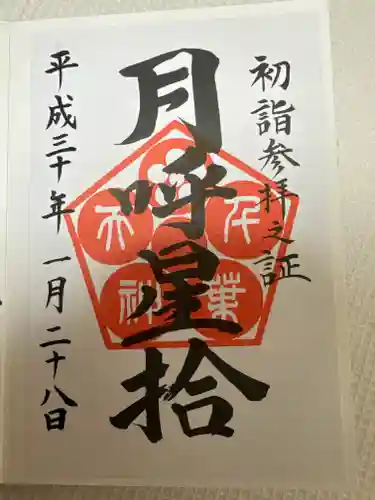 初詣参拝之証
月呼星拾
平成三十年一月二十八日
千葉天神